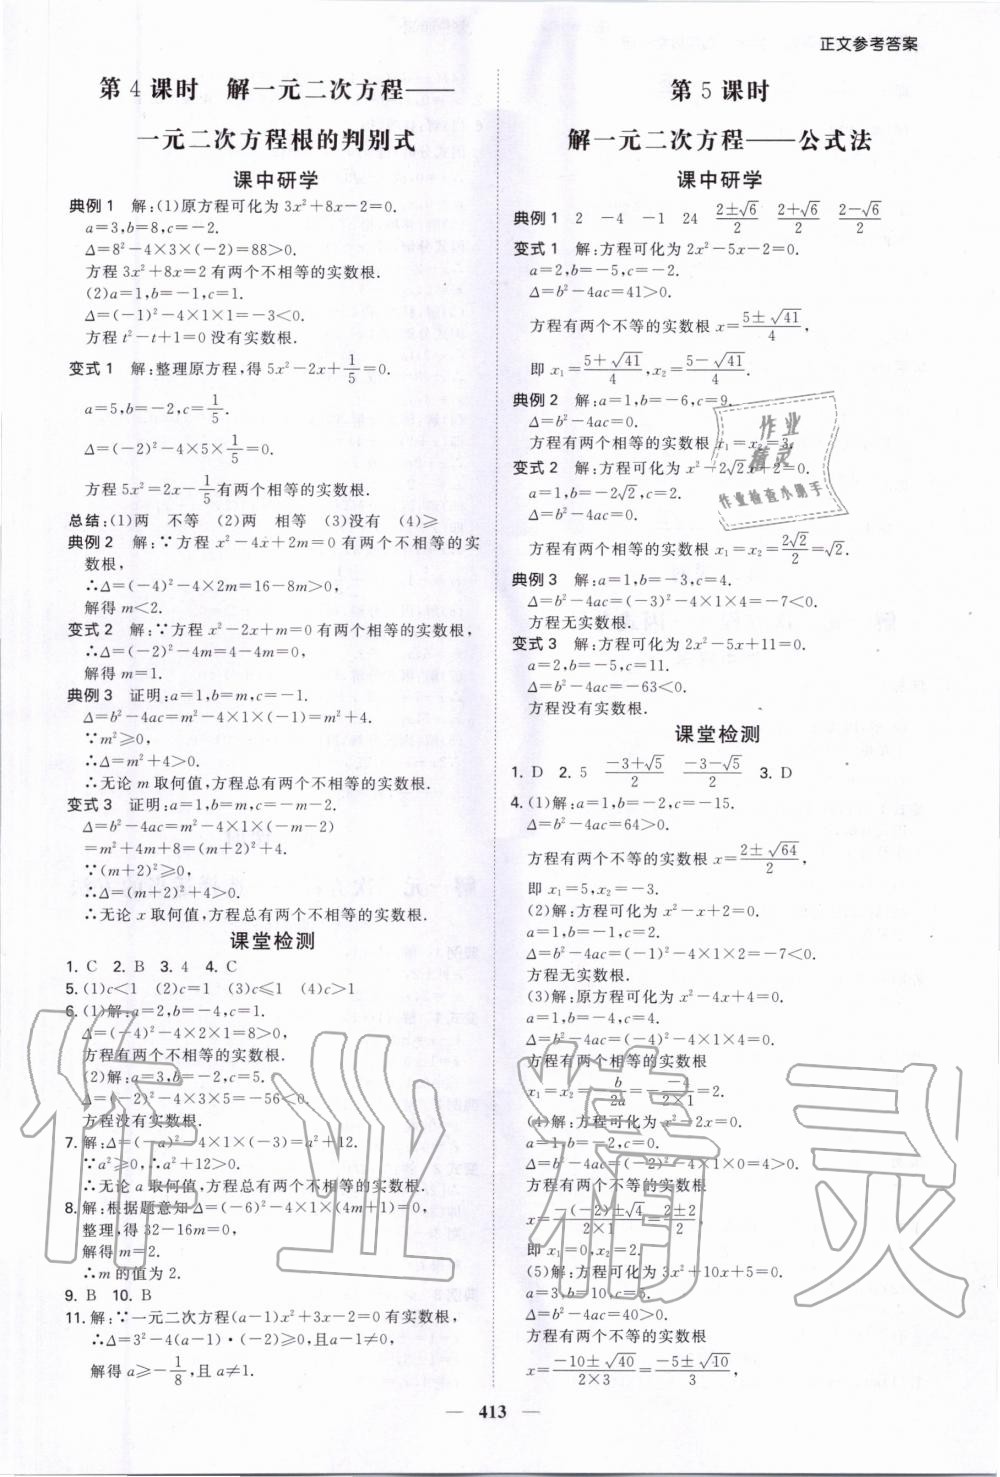 正文参考答案
第4课时 解一元二次方程——
一元二次方程根的判别式
课中研学
典例1 解:(1)原方程可化为 3x²+8x-2=0.
a=3,b=8,c=-2.
Δ=8²-4×3×(-2)=88>0.
方程 3x²+8x=2 有两个不相等的实数根.
(2)a=1,b=-1,c=1.
Δ=(-1)²-4×1×1=-3<0.
方程 t²-t+1=0 没有实数根.
变式1 解:整理原方程,得 5x²-2x+1/5=0.
a=5,b=-2,c=1/5.
Δ=(-2)²-4×5×1/5=0.
方程 5x²=2x-1/5 有两个相等的实数根.
总结:(1)两 不等 (2)两 相等 (3)没有 (4)≥
典例2 解:∵方程 x²-4x+2m=0 有两个不相等的实
数根,
∴Δ=(-4)²-4×2m=16-8m>0,
解得 m<2.
变式2 解:∵方程 x²-2x+m=0 有两个相等的实数根,
∴Δ=(-2)²-4m=4-4m=0,
解得 m=1.
典例3 证明:a=1,b=m,c=-1.
Δ=b²-4ac=m²-4×1×(-1)=m²+4.
∵m²≥0,
∴Δ=m²+4>0.
∴无论 m 取何值,方程总有两个不相等的实数根.
变式3 证明:a=1,b=m,c=-m-2.
Δ=b²-4ac=m²-4×1×(-m-2)
=m²+4m+8=(m+2)²+4.
∵(m+2)²≥0,
∴Δ=(m+2)²+4>0.
∴无论 x 取何值,方程总有两个不相等的实数根.
课堂检测
1. C 2. B 3. 4 4. C
5. (1)c<1 (2)c=1 (3)c≤1 (4)c>1
6. (1)解:a=2,b=-4,c=1.
Δ=(-4)²-4×2×1=8>0,
方程有两个不相等的实数根.
(2)解:a=3,b=-2,c=5.
Δ=(-2)²-4×3×5=-56<0.
方程没有实数根.
7. 解:Δ=(-a)²-4×1×(-3)=a²+12.
∵a²≥0,∴a²+12>0.
∴无论 a 取何值,方程总有两个不相等的实数根.
8. 解:根据题意知 Δ=(-6)²-4×1×(4m+1)=0,
整理,得 32-16m=0,
解得 m=2.
∴m 的值为 2.
9. B 10. B
11. 解:∵一元二次方程(a-1)x²+3x-2=0 有实数根,
∴Δ=3²-4(a-1)·(-2)≥0,且 a-1≠0,
解得 a≥-1/8,且 a≠1.
第5课时
解一元二次方程——公式法
课中研学
典例1 2 -4 -1 24 (2±√6)/2 (2+√6)/2 (2-√6)/2
变式1 解:方程可化为 2x²-5x-2=0.
a=2,b=-5,c=-2.
Δ=b²-4ac=41>0.
方程有两个不等的实数根 x=(5±√41)/4,
即 x₁=(5+√41)/4,x₂=(5-√41)/4.
典例2 解:a=1,b=-6,c=9.
Δ=b²-4ac=0.
方程有两个相等的实数根 x₁=x₂=3.
变式2 解:方程可化为 x²-2√2x+2=0.
a=1,b=-2√2,c=2.
Δ=b²-4ac=0.
方程有两个相等的实数根 x₁=x₂=2√2/2=√2.
典例3 解:a=1,b=-3,c=4.
Δ=b²-4ac=(-3)²-4×1×4=-7<0.
方程无实数根.
变式3 解:方程可化为 2x²-5x+11=0.
a=2,b=-5,c=11.
Δ=b²-4ac=-63<0.
方程没有实数根.
课堂检测
1. D 2. 5 (-3+√5)/2 (-3-√5)/2 3. D
4. (1)解:a=1,b=-2,c=-15.
Δ=b²-4ac=64>0.
方程有两个不相等的实数根 x=(2±√64)/2,
即 x₁=5,x₂=-3.
(2)解:方程可化为 x²-x+2=0.
a=1,b=-1,c=2.
Δ=b²-4ac=(-1)²-4×1×2=-7<0.
方程无实数根.
(3)解:原方程可化为 x²-4x+4=0.
a=1,b=-4,c=4.
Δ=b²-4ac=(-4)²-4×1×4=0.
方程有两个相等的实数根
x₁=x₂=-b/2a=-(-4)/(2×1)=2.
(4)解:方程可化为 x²-2x=0.
a=1,b=-2,c=0.
Δ=b²-4ac=(-2)²-4×1×0=4>0.
方程有两个不等的实数根
x=(-(-2)±√4)/(2×1)=(2±2)/2,
即 x₁=0,x₂=2.
(5)解:方程可化为 3x²+10x+5=0.
a=3,b=10,c=5.
Δ=b²-4ac=40>0.
方程有两个不相等的实数根
x=(-10±√40)/(2×3)=(-5±√10)/3,
— 413 —
作业
精灵
作业检查小助手
作业精灵